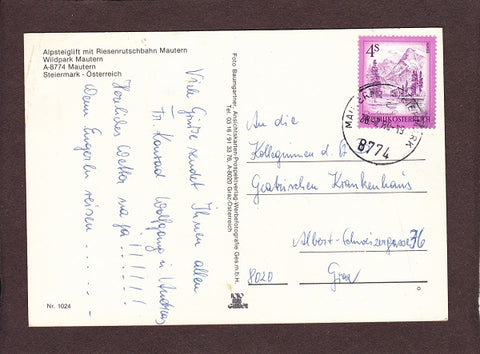 Alpsteiglift mit Riesenrutschbahn Mautern
Wildpark Mautern
A-8774 Mautern
Steiermark - Österreich
Viele Grüße sendet Ihnen allen
Fr. Konrad Wolfgang u. Andreas
Herrliches Wetter na ja ...!!!!!!
Wenn Engerln reisen ......
Nr. 1024
Foto Baumgartner, Ansichtskarten-Prospektverlag-Werbefotografie Ges.m.b.H.
A-8020 Graz-Österreich
4 S
REPUBLIK ÖSTERREICH
8774
An die
Kolleginnen d.
Geriatrischen Krankenhaus
Albert-Schweizergasse 36
8020 Graz